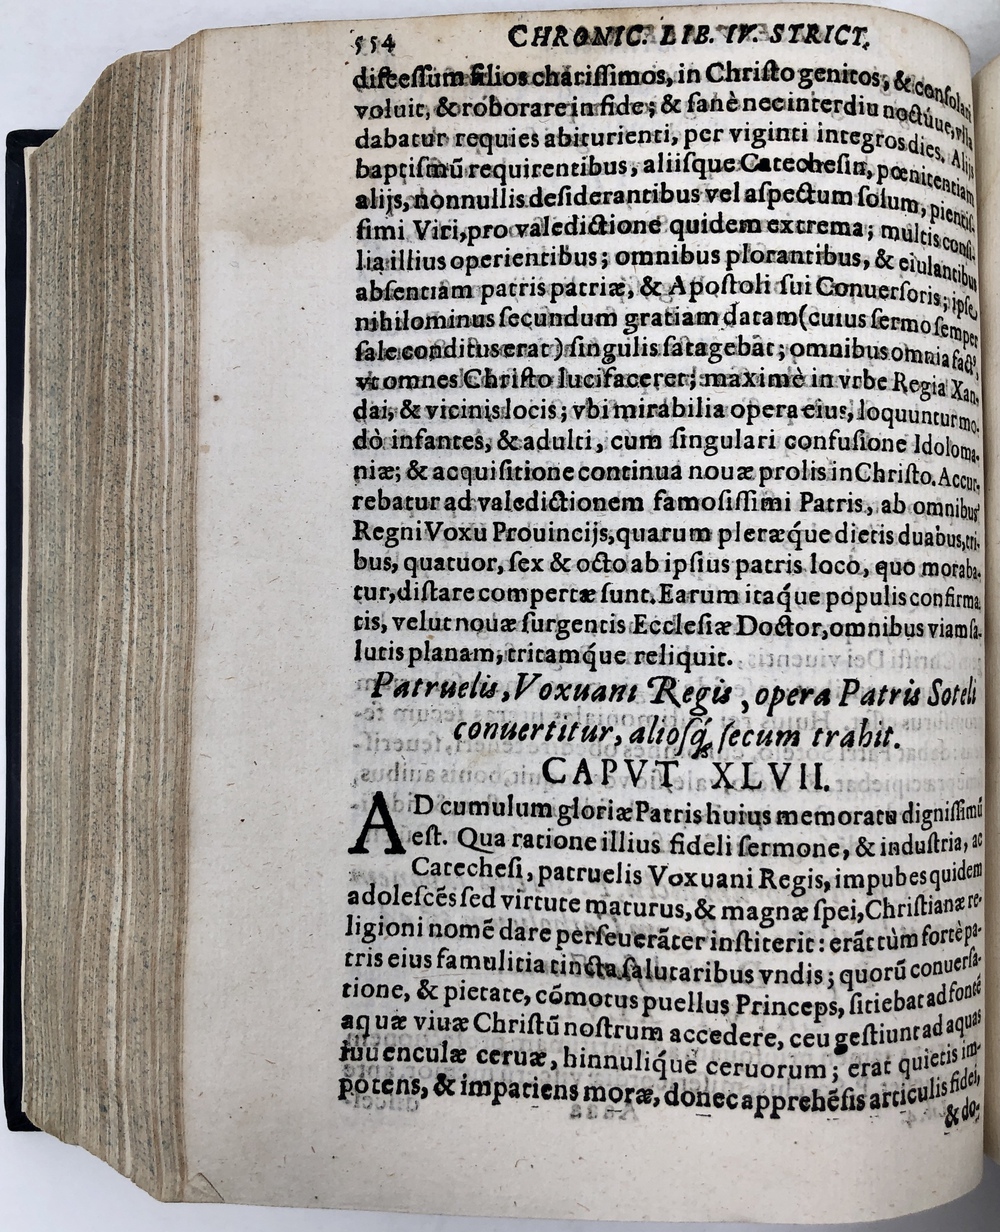 554 CHRONIC. LIB. IV. STRICT.
discessum filios charissimos, in Christo genitos, & consolari
voluit, & roborare in fide; & sanè nec interdiu noctúue, vlla
dabatur requies abiturienti, per viginti integros dies. Alijs
baptismū requirentibus, aliisque Catechesin, pœnitentiam
alijs, nonnullis desiderantibus vel aspectum solum, pientis-
simi Viri, pro valedictione quidem extrema; multis consi-
lia illius operientibus; omnibus plorantibus, & eiulantibus
absentiam patris patriæ, & Apostoli sui Conuersoris; ipse
nihilominus secundum gratiam datam (cuius sermo semper
sale conditus erat) singulis satagebat; omnibus omnia fact9,
vt omnes Christo lucifaceret; maximè in vrbe Regia Xan-
dai, & vicinis locis; vbi mirabilia opera eius, loquuntur mo-
dò infantes, & adulti, cum singulari confusione Idoloma-
niæ; & acquisitione continua nouæ prolis in Christo. Accur-
rebatur ad valedictionem famosissimi Patris, ab omnibus
Regni Voxu Prouincijs, quarum pleræq́ue dietis duabus, tri-
bus, quatuor, sex & octo ab ipsius patris loco, quo moraba-
tur, distare compertæ sunt. Earum itaq́ue populis confirma-
tis, velut nouæ surgentis Ecclesiæ Doctor, omnibus viam sa-
lutis planam, tritamq́ue reliquit.
Patruelis, Voxuani Regis, opera Patris Soteli
conuertitur, aliosq́; secum trahit.
CAPVT XLVII.
AD cumulum gloriæ Patris huius memoratu dignissimū
est. Qua ratione illius fideli sermone, & industria, ac
Catechesi, patruelis Voxuani Regis, impubes quidem
adolescēs sed virtute maturus, & magnæ spei, Christianæ re-
ligioni nomē dare perseuerāter institerit: erāt tùm fortè pa-
tris eius famulitia tincta salutaribus vndis; quorū conuersa-
tione, & pietate, cōmotus puellus Princeps, sitiebat ad fontē
aquæ viuæ Christū nostrum accedere, ceu gestiunt ad aquas
iuuenculæ ceruæ, hinnuliq́ue ceruorum; erat quietis im-
potens, & impatiens moræ, donec apprehēsis articulis fidei,
& do-